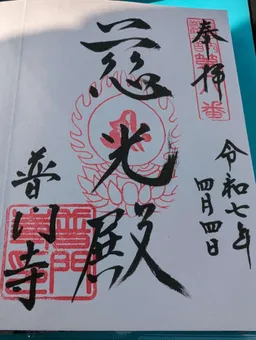 奉拝
令和七年
四月四日
慈光殿
普門寺
普門